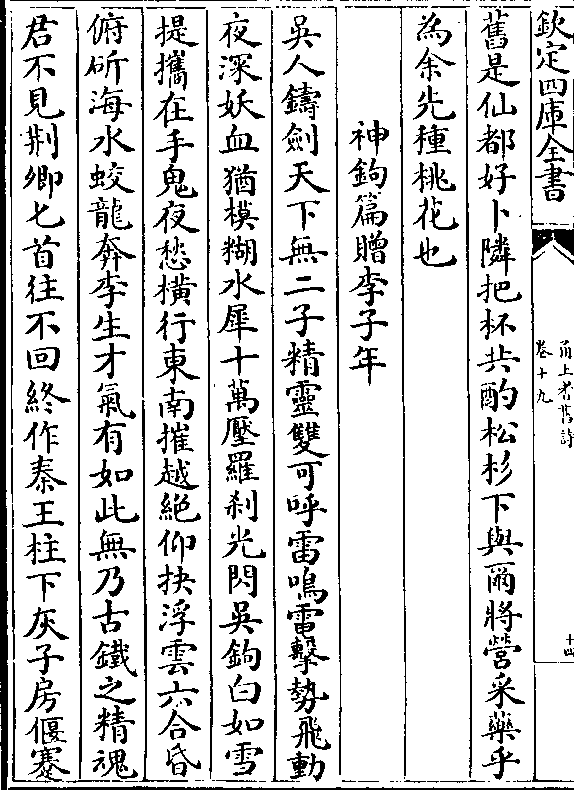 欽定四庫全書
甬上耆舊詩
卷十九
十四
舊是仙都好卜隣把杯共酌松杉下與爾將營采藥乎
為余先種桃花也
神鉤篇贈李子年
吳人鑄劍天下無二子精靈雙可呼雷鳴電擊勢飛動
夜深妖血猶模糊水犀十萬壓羅刹光閃吳鉤白如雪
提攜在手鬼夜愁橫行東南摧越絕仰抉浮雲六合昏
俯斫海水蛟龍奔李生才氣有如此無乃古鐵之精魂
君不見荆卿匕首往不回終作秦王柱下灰子房偃蹇